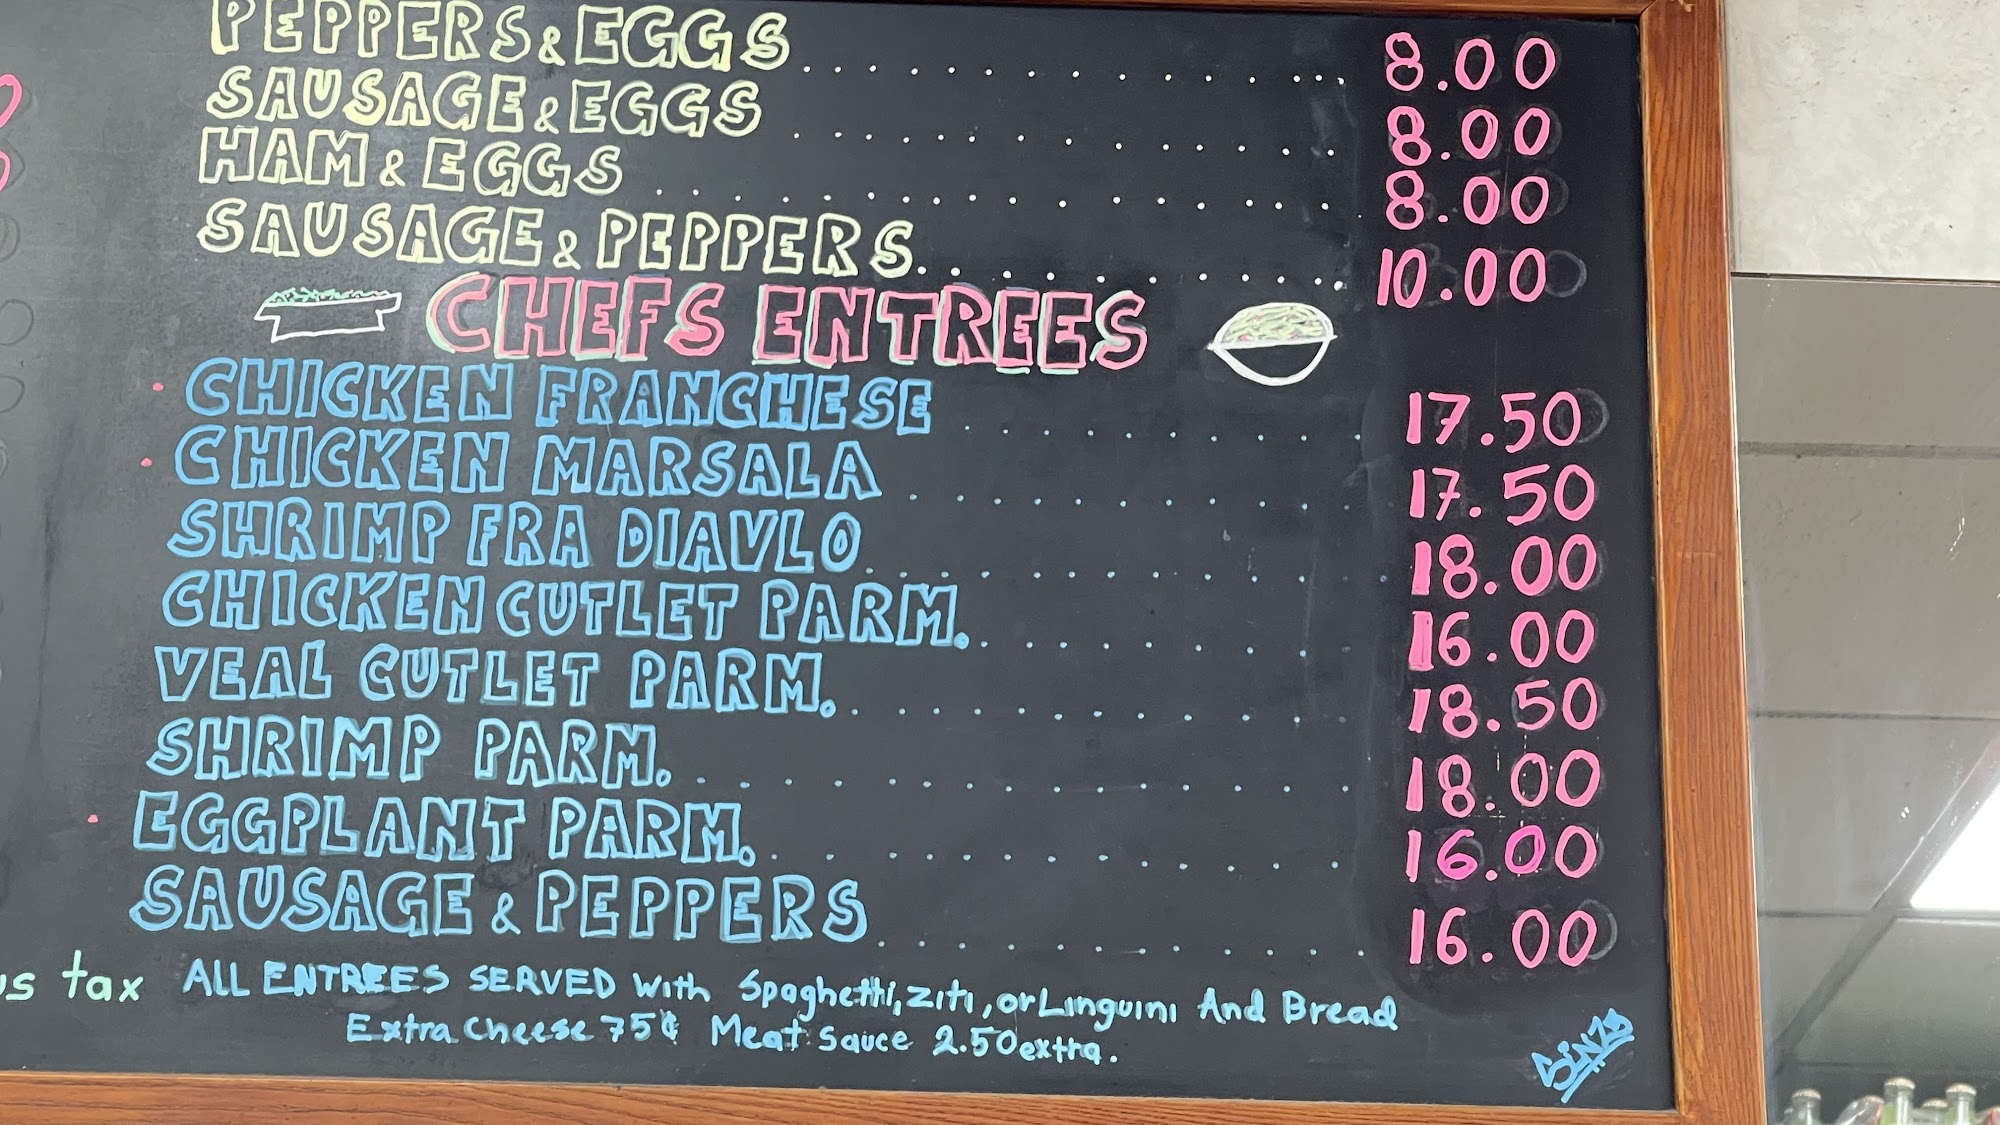 PEPPERS & EGGS 8.00
SAUSAGE & EGGS 8.00
HAM & EGGS 8.00
SAUSAGE & PEPPERS 10.00
CHEFS ENTREES
CHICKEN FRANCHESE 17.50
CHICKEN MARSALA 17.50
SHRIMP FRA DIAVLO 18.00
CHICKEN CUTLET PARM. 16.00
VEAL CUTLET PARM. 18.50
SHRIMP PARM. 18.00
EGGPLANT PARM. 16.00
SAUSAGE & PEPPERS 16.00
us tax ALL ENTREES SERVED with Spaghetti, ziti, or Linguini And Bread
Extra cheese 75¢ Meat sauce 2.50 extra.